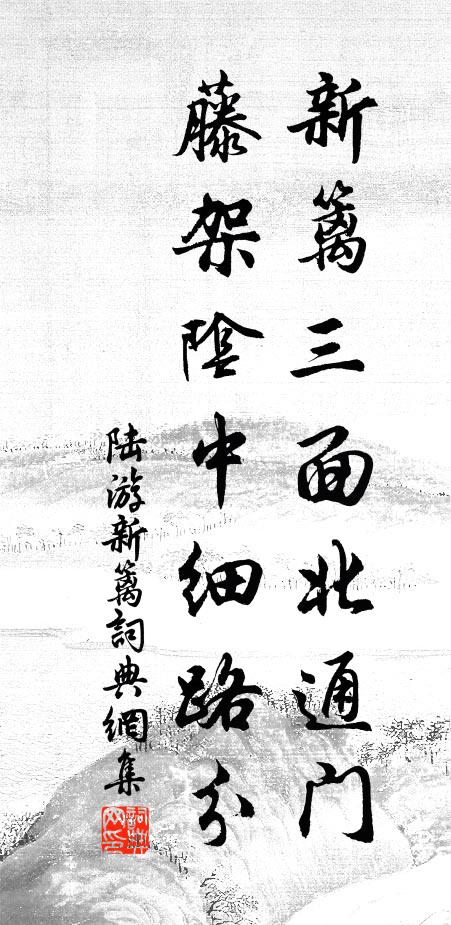 新篱三面北通门
藤架陰中细路分
陆游新篱詞典網集
詞典网印